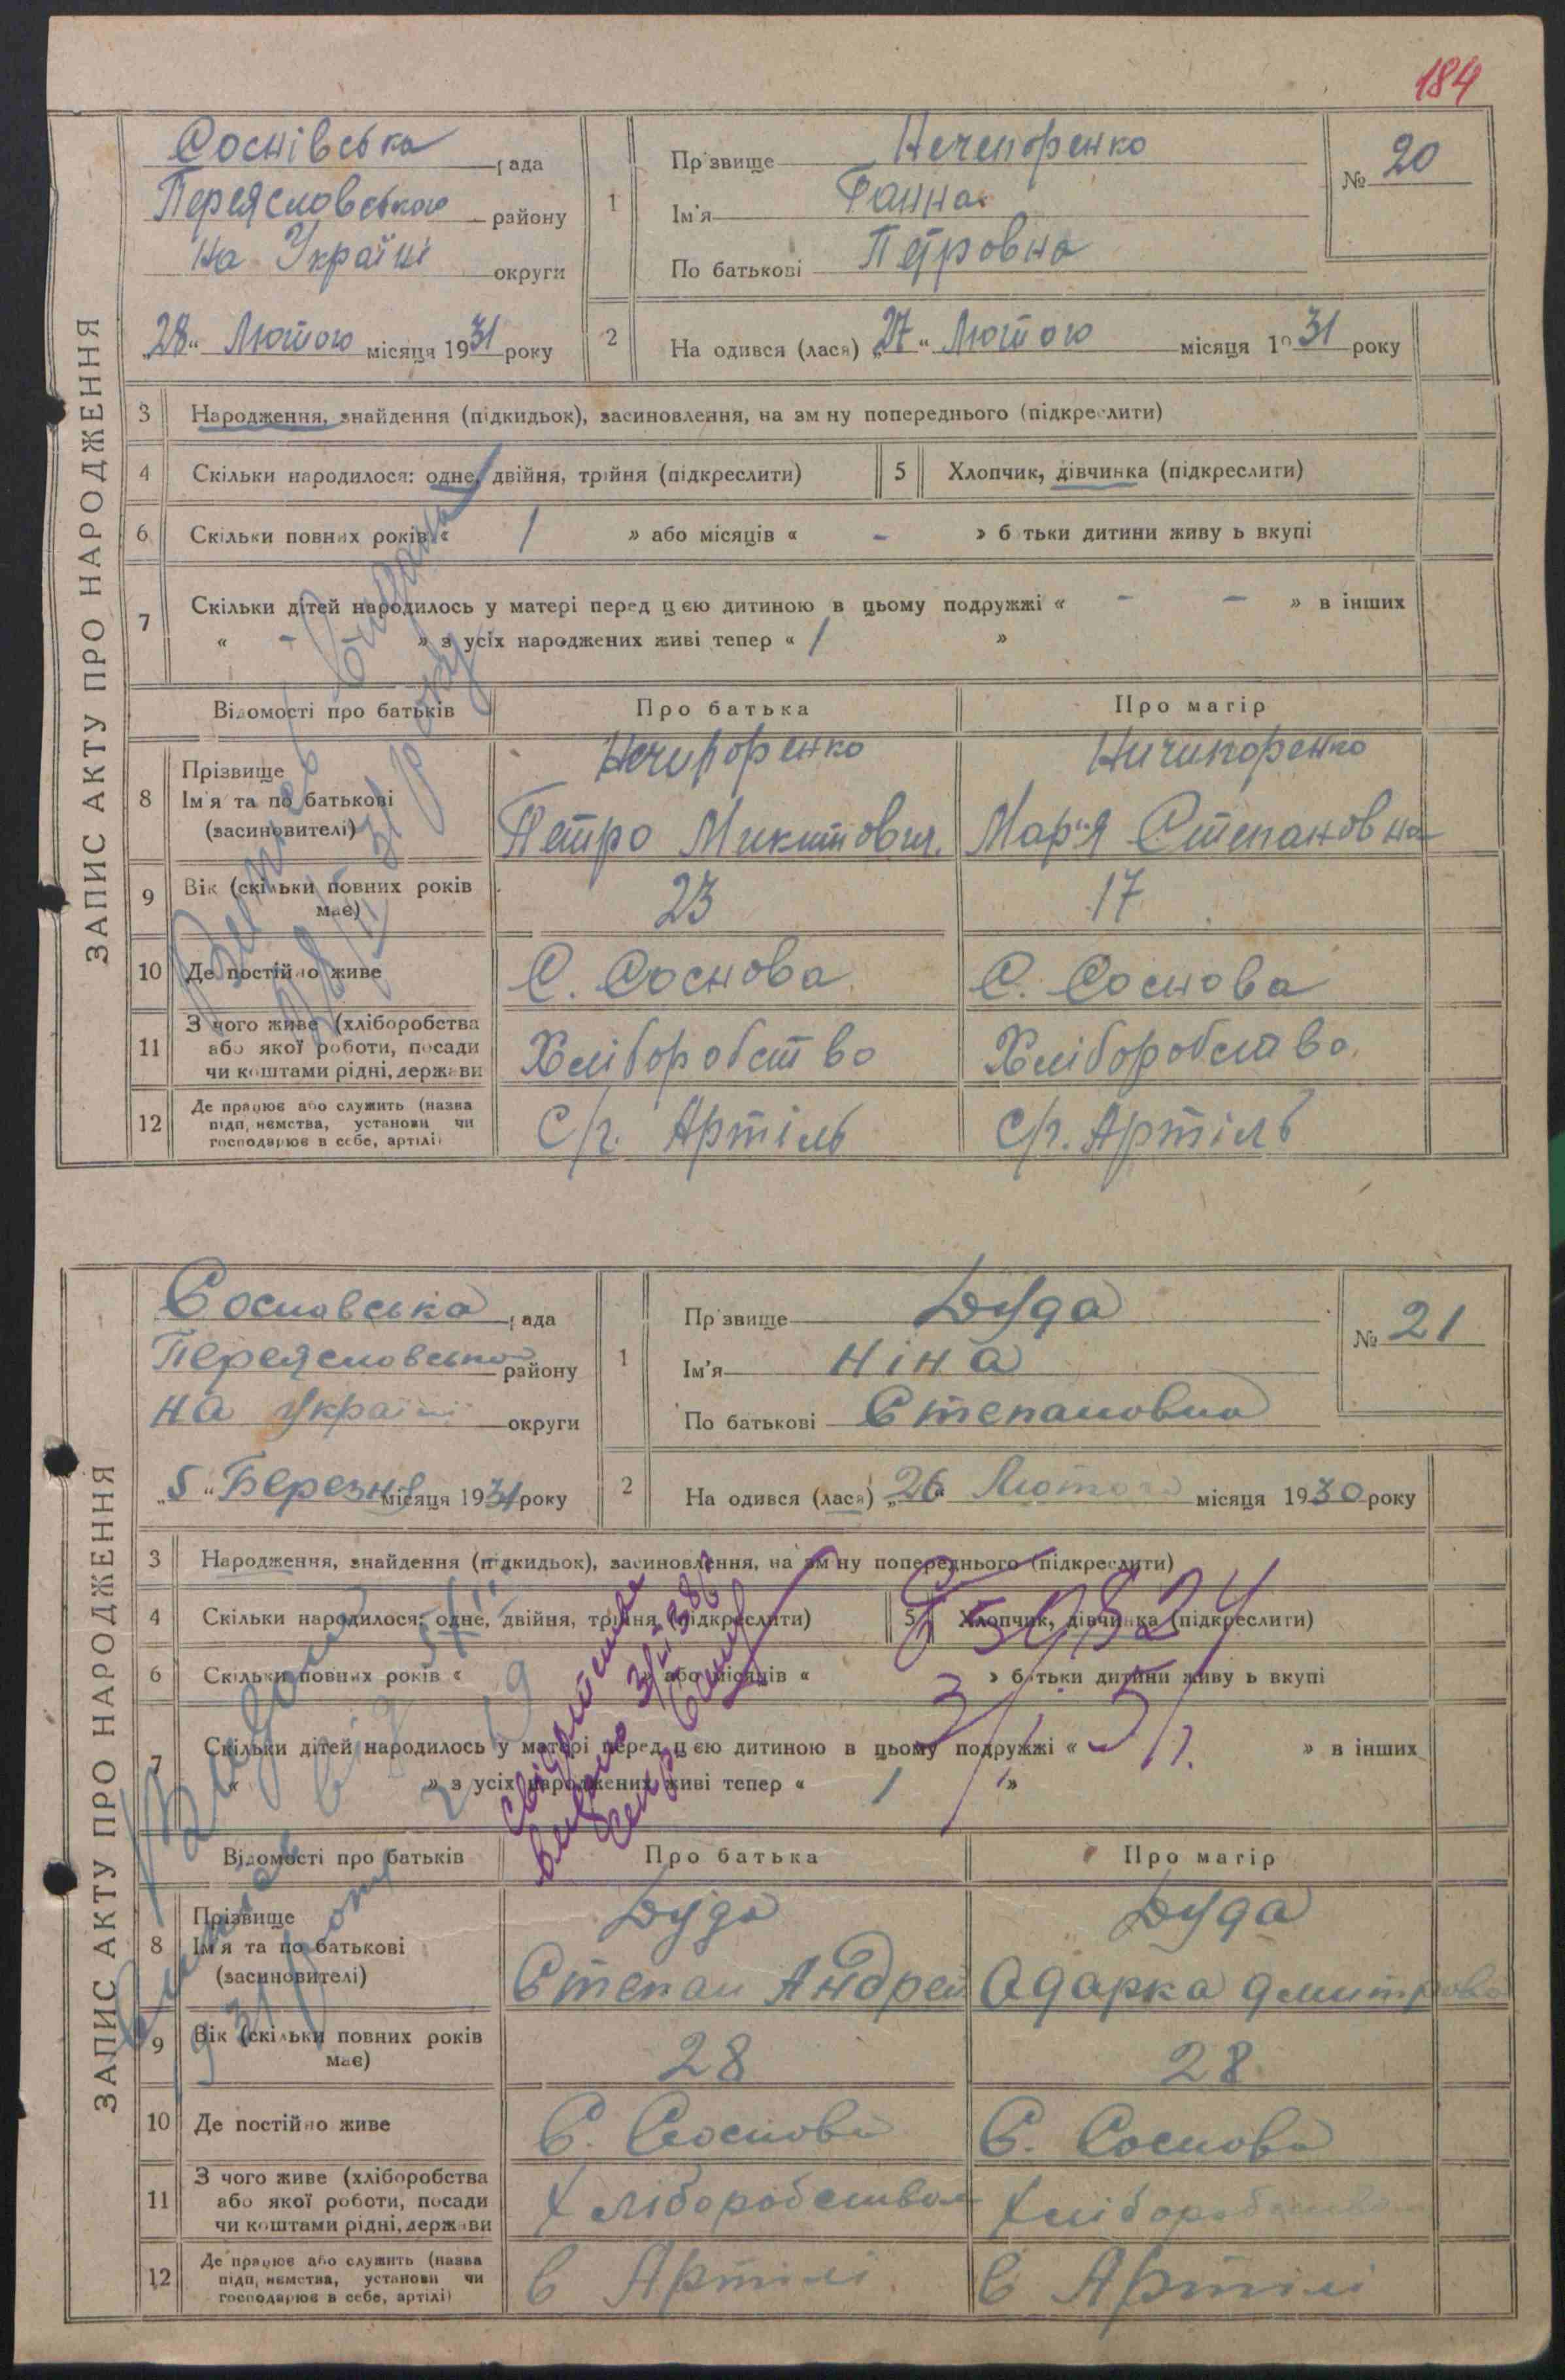 184
ЗАПИС АКТУ ПРО НАРОДЖЕННЯ
Соснівська рада
Переясловського району
на Україні округи
„28“ Лютого місяця 1931 року
1
Прізвище Нечепоренко
Ім'я Ганна
По батькові Петровна
№ 20
2 На одився (лася) „27“ Лютого місяця 1931 року
3 Народження, знайдення (підкидьок), засиновлення, на зм ну попереднього (підкреслити)
4 Скільки народилося: одне, двійня, трійня (підкреслити) 5 Хлопчик, дівчинка (підкреслити)
6 Скільки повних років « 1 » або місяців « - » б тьки дитини живу ь вкупі
7 Скільки дітей народилось у матері перед цією дитиною в цьому подружжі « - - » в інших
« - » з усіх народжених живі тепер « 1 »
Відомості про батьків Про батька Про матір
8 Прізвище
Ім'я та по батькові
(засиновителі)
Нечипоренко
Петро Микитович
Ничипоренко
Мар'я Степановна
9 Вік (скільки повних років має) 23 17
10 Де постійно живе С. Соснова С. Соснова
11 З чого живе (хліборобства
або якої роботи, посади
чи коштами рідні, держави
Хліборобство Хліборобство
12 Де працює або служить (назва
підп, немства, установи чи
господарює в себе, артілі)
С/г. Артіль С/г. Артіль
31 року
ЗАПИС АКТУ ПРО НАРОДЖЕННЯ
Сосновська рада
Переясловського району
на Україні округи
„5“ Березня місяця 1931 року
1
Прізвище Дуда
Ім'я Ніна
По батькові Степановна
№ 21
2 На одився (лася) „26“ Лютого місяця 1930 року
3 Народження, знайдення (підкидьок), засиновлення, на зм ну попереднього (підкреслити)
4 Скільки народилося: одне, двійня, трійня (підкреслити) 5 Хлопчик, дівчинка (підкреслити)
6 Скільки повних років « 9 » або місяців « » б тьки дитини живу ь вкупі
7 Скільки дітей народилось у матері перед цією дитиною в цьому подружжі « » в інших
« 2 » з усіх народжених живі тепер « 1 »
Відомості про батьків Про батька Про матір
8 Прізвище
Ім'я та по батькові
(засиновителі)
Дуда
Степан Андрей
Дуда
Одарка Дмитрова
9 Вік (скільки повних років має) 28 28
10 Де постійно живе С. Соснова С. Соснова
11 З чого живе (хліборобства
або якої роботи, посади
чи коштами рідні, держави
Хліборобством Хліборобством
12 Де працює або служить (назва
підп, немства, установи чи
господарює в себе, артілі)
в Артілі в Артілі
Свідоцтво
видано